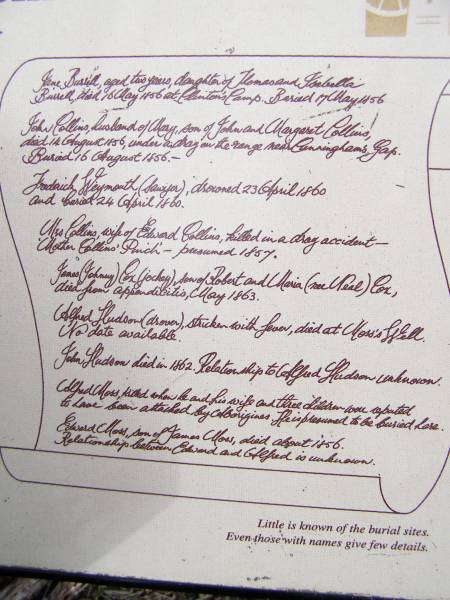 Jane Burrell, aged two years, daughter of Thomas and Isabella
Burrell, died 16 May 1856 at Clinton's Camp. Buried 17 May 1856
John Collins, husband of Mary, son of John and Margaret Collins,
died 14 August 1856, under a drag on the range near Cunningham's Gap.
Buried 16 August 1856.—
Frederick Weymouth (Sawyer), drowned 23 April 1860
and buried 24 April 1860.
Mrs Collins, wife of Edward Collins, killed in a drag accident —
'Mother Collins' Pinch' — presumed 1857.
James (Johnny) Cox (jockey), son of Robert and Maria (nee Neal) Cox,
died from appendicitis, May 1863.
Alfred Hudson (drover), stricken with fever, died at Moss's Well.
No date available.
John Hudson died in 1862. Relationship to Alfred Hudson unknown.
Alfred Moss, killed when he and his wife and three children were reputed
to have been attacked by Aborigines. He is presumed to be buried here.
Edward Moss, son of James Moss, died about 1856.
Relationship between Edward and Alfred is unknown.
Little is known of the burial sites.
Even those with names give few details.